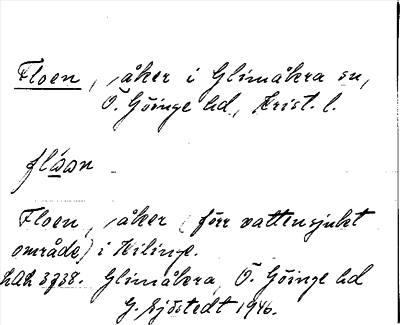 Floen, åker i Glimåkra sn,
Ö. Göinge hd, Krist. l.
flåan
Floen, åker (förr vattensjukt
område) i Hilinge.
LAL 3738. Glimåkra, Ö. Göinge hd
G. Sjöstedt 1946.